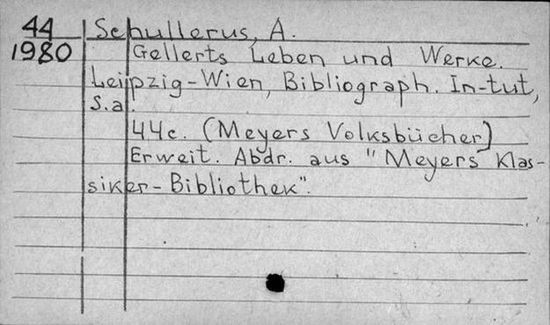 44 Schullerus, A.
1980 Gellerts Leben und Werke.
Leipzig-Wien, Bibliograph. In-tut,
S.a.
44c. (Meyers Volksbücher)
Erweit. Abdr. aus "Meyers Klas-
siker-Bibliothek".